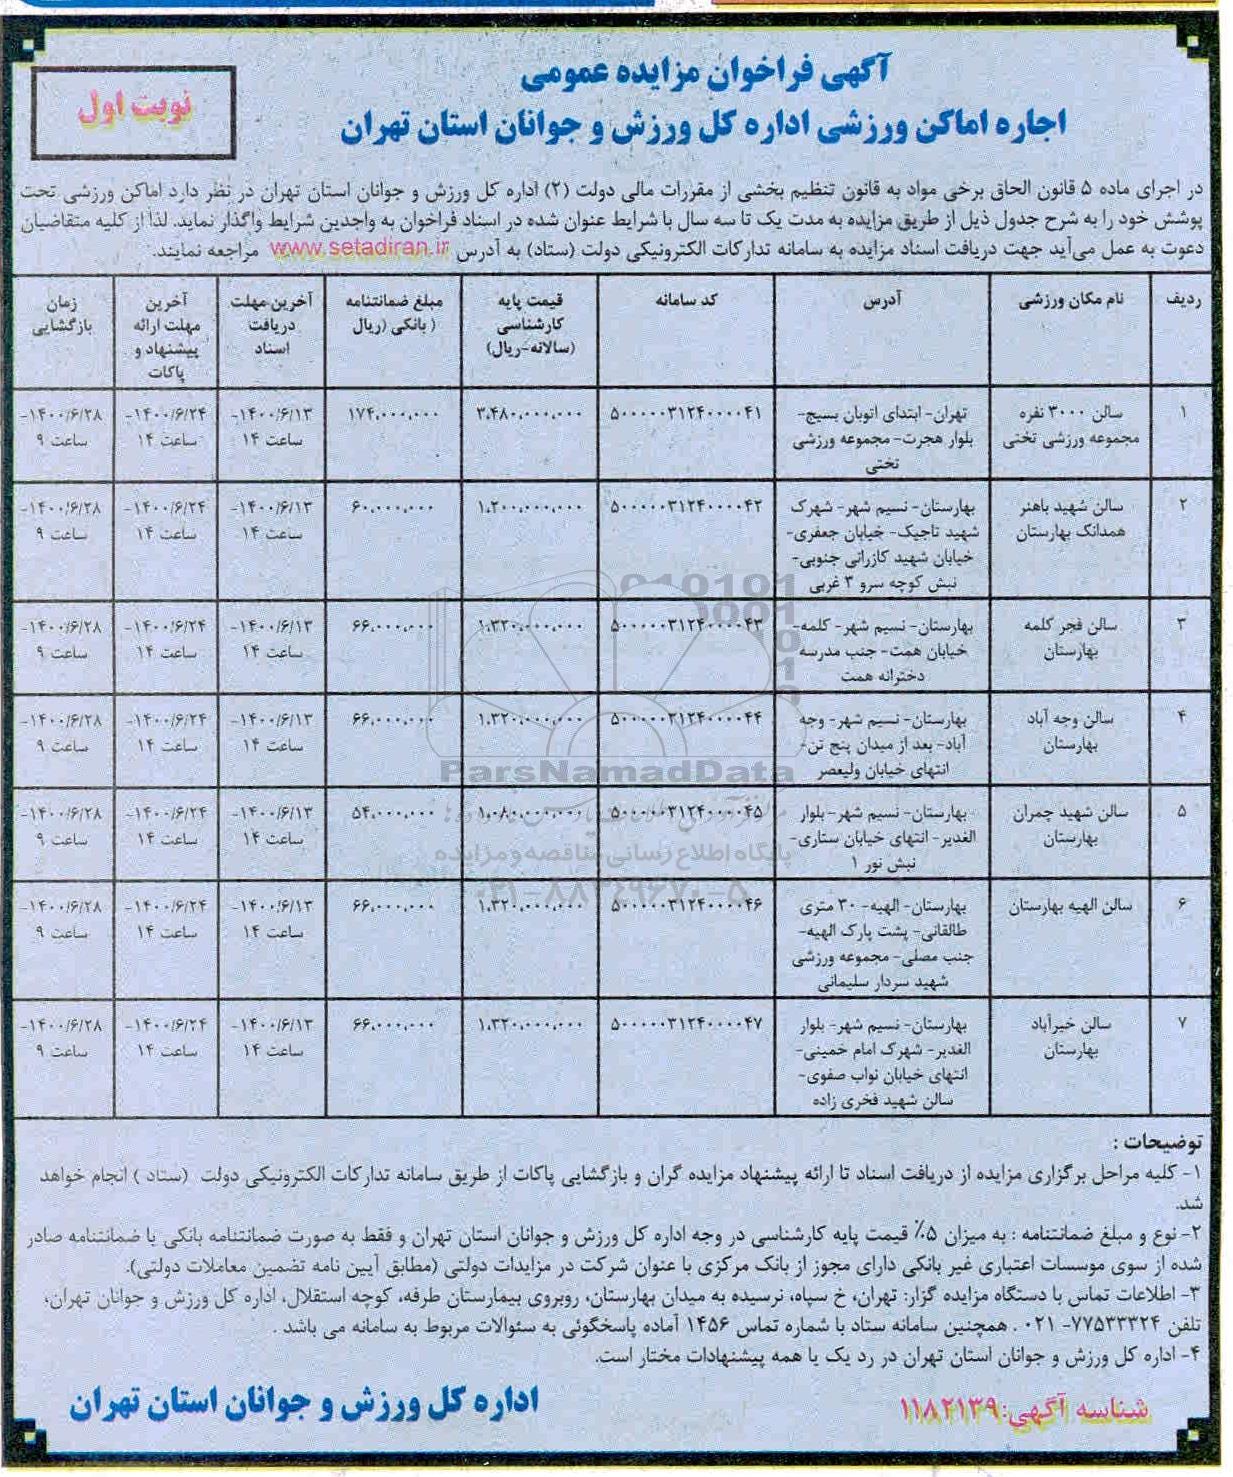 آگهی فراخوان مزایده عمومی
اجاره اماکن ورزشی اداره کل ورزش و جوانان استان تهران
نوبت اول
در اجرای ماده ۵ قانون الحاق برخی مواد به قانون تنظیم بخشی از مقررات مالی دولت (۲) اداره کل ورزش و جوانان استان تهران در نظر دارد اماکن ورزشی تحت
پوشش خود را به شرح جدول ذیل از طریق مزایده به مدت یک تا سه سال با شرایط عنوان شده در اسناد فراخوان به واجدین شرایط واگذار نماید. لذا از کلیه متقاضیان
دعوت به عمل می‌آید جهت دریافت اسناد مزایده به سامانه تدارکات الکترونیکی دولت (ستاد) به آدرس www.setadiran.ir مراجعه نمایند.
ردیف
نام مکان ورزشی
آدرس
کد سامانه
قیمت پایه
کارشناسی
(سالانه-ریال)
مبلغ ضمانتنامه
( بانکی (ریال
آخرین مهلت
دریافت
اسناد
آخرین
مهلت ارائه
پیشنهاد و
پاکات
زمان
بازگشایی
۱
سالن ۳۰۰۰ نفره
مجموعه ورزشی تختی
تهران- ابتدای اتوبان بسیج-
بلوار هجرت- مجموعه ورزشی
تختی
۵۰۰۰۰۰۳۱۲۴۰۰۰۰۴۱
۳،۴۸۰،۰۰۰،۰۰۰
۱۷۴،۰۰۰،۰۰۰
۱۴۰۰/۶/۱۳-
ساعت ۱۴
۱۴۰۰/۶/۲۴-
ساعت ۱۴
۱۴۰۰/۶/۲۸-
ساعت ۹
۲
سالن شهید باهنر
همدانک بهارستان
بهارستان- نسیم شهر- شهرک
شهید تاجیک- خیابان جعفری-
خیابان شهید کازرانی جنوبی-
نبش کوچه سرو ۳ غربی
۵۰۰۰۰۰۳۱۲۴۰۰۰۰۴۲
۱،۲۰۰،۰۰۰،۰۰۰
۶۰،۰۰۰،۰۰۰
۱۴۰۰/۶/۱۳-
ساعت ۱۴
۱۴۰۰/۶/۲۴-
ساعت ۱۴
۱۴۰۰/۶/۲۸-
ساعت ۹
۳
سالن فجر کلمه
بهارستان
بهارستان- نسیم شهر- کلمه-
خیابان همت- جنب مدرسه
دخترانه همت
۵۰۰۰۰۰۳۱۲۴۰۰۰۰۴۳
۱،۳۲۰،۰۰۰،۰۰۰
۶۶،۰۰۰،۰۰۰
۱۴۰۰/۶/۱۳-
ساعت ۱۴
۱۴۰۰/۶/۲۴-
ساعت ۱۴
۱۴۰۰/۶/۲۸-
ساعت ۹
۴
سالن وجه آباد
بهارستان
بهارستان- نسیم شهر- وجه
آباد- بعد از میدان پنج تن-
انتهای خیابان ولیعصر
۵۰۰۰۰۰۳۱۲۴۰۰۰۰۴۴
۱،۳۲۰،۰۰۰،۰۰۰
۶۶،۰۰۰،۰۰۰
۱۴۰۰/۶/۱۳-
ساعت ۱۴
۱۴۰۰/۶/۲۴-
ساعت ۱۴
۱۴۰۰/۶/۲۸-
ساعت ۹
ParsNamadData
۵
سالن شهید چمران
بهارستان
بهارستان- نسیم شهر- بلوار
الغدیر- انتهای خیابان ستاری-
نبش نور ۱
۵۰۰۰۰۰۳۱۲۴۰۰۰۰۴۵
۱،۰۸۰،۰۰۰،۰۰۰
۵۴،۰۰۰،۰۰۰
۱۴۰۰/۶/۱۳-
ساعت ۱۴
۱۴۰۰/۶/۲۴-
ساعت ۱۴
۱۴۰۰/۶/۲۸-
ساعت ۹
پایگاه اطلاع رسانی مناقصه و مزایده
۰۲۱-۸۸۳۴۹۶۷۰-۵
۶
سالن الهیه بهارستان
بهارستان- الهیه- ۳۰ متری
طالقانی- پشت پارک الهیه-
جنب مصلی- مجموعه ورزشی
شهید سردار سلیمانی
۵۰۰۰۰۰۳۱۲۴۰۰۰۰۴۶
۱،۳۲۰،۰۰۰،۰۰۰
۶۶،۰۰۰،۰۰۰
۱۴۰۰/۶/۱۳-
ساعت ۱۴
۱۴۰۰/۶/۲۴-
ساعت ۱۴
۱۴۰۰/۶/۲۸-
ساعت ۹
۷
سالن خیرآباد
بهارستان
بهارستان- نسیم شهر- بلوار
الغدیر- شهرک امام خمینی-
انتهای خیابان نواب صفوی-
سالن شهید فخری زاده
۵۰۰۰۰۰۳۱۲۴۰۰۰۰۴۷
۱،۳۲۰،۰۰۰،۰۰۰
۶۶،۰۰۰،۰۰۰
۱۴۰۰/۶/۱۳-
ساعت ۱۴
۱۴۰۰/۶/۲۴-
ساعت ۱۴
۱۴۰۰/۶/۲۸-
ساعت ۹
توضیحات :
۱- کلیه مراحل برگزاری مزایده از دریافت اسناد تا ارائه پیشنهاد مزایده گران و بازگشایی پاکات از طریق سامانه تدارکات الکترونیکی دولت (ستاد ) انجام خواهد
شد.
۲- نوع و مبلغ ضمانتنامه : به میزان ۵٪ قیمت پایه کارشناسی در وجه اداره کل ورزش و جوانان استان تهران و فقط به صورت ضمانتنامه بانکی یا ضمانتنامه صادر
شده از سوی موسسات اعتباری غیر بانکی دارای مجوز از بانک مرکزی با عنوان شرکت در مزایدات دولتی (مطابق آیین نامه تضمین معاملات دولتی).
۳- اطلاعات تماس با دستگاه مزایده گزار: تهران، خ سپاه، نرسیده به میدان بهارستان، روبروی بیمارستان طرفه، کوچه استقلال، اداره کل ورزش و جوانان تهران،
تلفن ۷۷۵۳۳۳۲۴- ۰۲۱ . همچنین سامانه ستاد با شماره تماس ۱۴۵۶ آماده پاسخگوئی به سئوالات مربوط به سامانه می باشد .
۴- اداره کل ورزش و جوانان استان تهران در رد یک یا همه پیشنهادات مختار است.
شناسه آگهی:۱۱۸۲۱۳۹
اداره کل ورزش و جوانان استان تهران